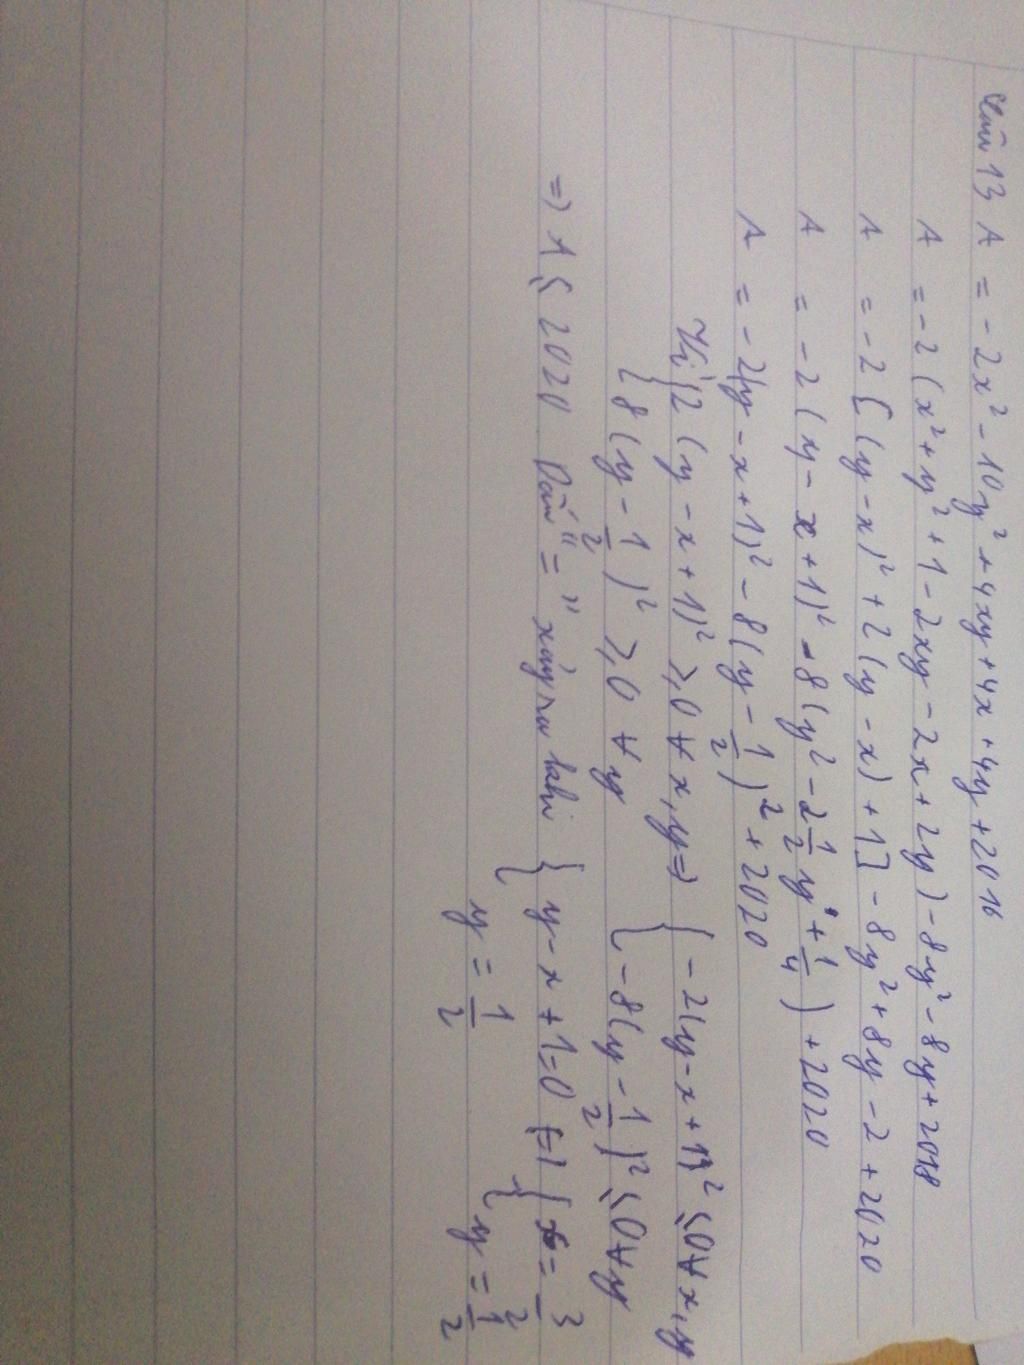 Câu 13 A = -2x² - 10y² + 4xy + 4x + 4y + 2016
A = -2 (x² + y² + 1 - 2xy - 2x + 2y) - 8y² - 8y + 2018
A = -2 [(y - x)² + 2(y - x) + 1] - 8y² + 8y - 2 + 2020
A = -2 (y - x + 1)² - 8 (y² - 2 1/2 y + 1/4) + 2020
A = -2(y - x + 1)² - 8(y - 1/2)² + 2020
Vì { 2 (y - x + 1)² ≥ 0 ∀ x, y => { -2(y - x + 1)² ≤ 0 ∀ x, y
{ 8 (y - 1/2)² ≥ 0 ∀ y { -8(y - 1/2)² ≤ 0 ∀ y
=> A ≤ 2020 Dấu "=" xảy ra khi { y - x + 1 = 0 <=> { x = 3/2
y = 1/2 { y = 1/2